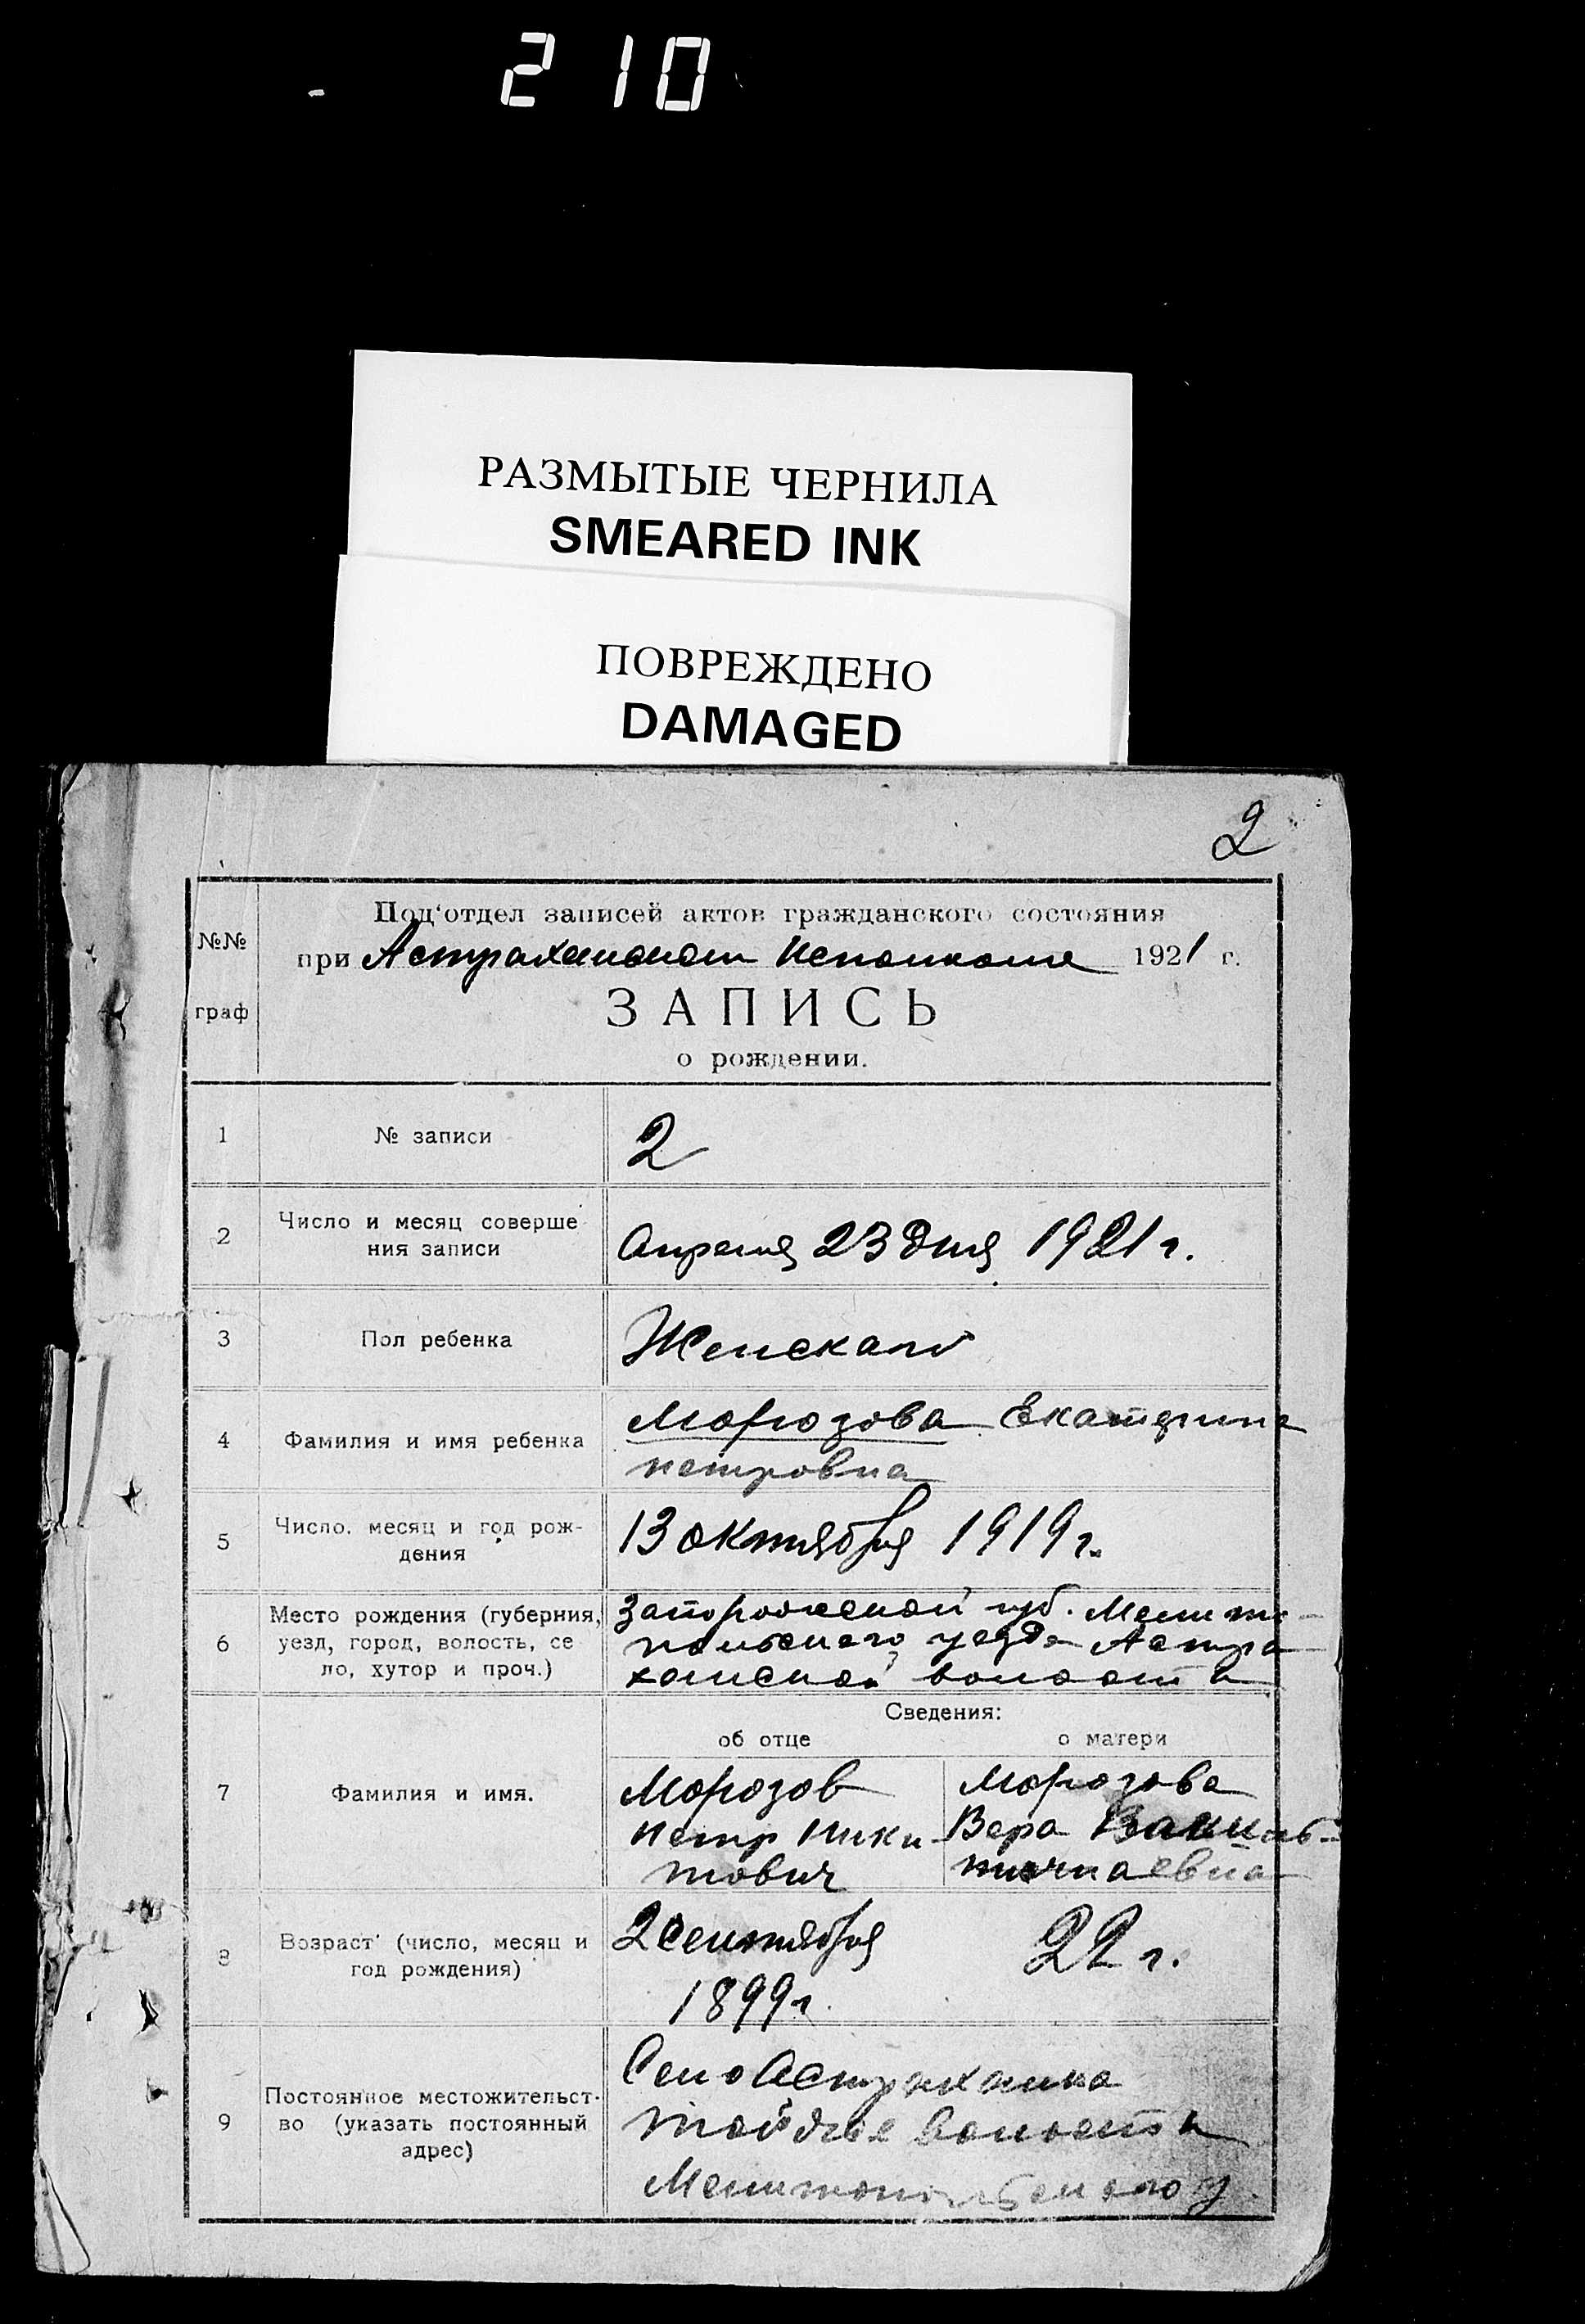 210
РАЗМЫТЫЕ ЧЕРНИЛА
SMEARED INK
ПОВРЕЖДЕНО
DAMAGED
2
№№
граф
Под'отдел записей актов гражданского состояния
при Астраханском Исполкоме 1921 г.
ЗАПИСЬ
о рождении.
1
№ записи
2
2
Число и месяц соверше
ния записи
Апреля 23 дня 1921 г.
3
Пол ребенка
Женскаго
4
Фамилия и имя ребенка
Морозова Екатерина
петровна
5
Число, месяц и год рож-
дения
13 октября 1919 г.
6
Место рождения (губерния,
уезд, город, волость, се
ло, хутор и проч.)
Запорожской губ. Мелито-
польского уезда Астра
ханской волости
Сведения:
об отце
о матери
7
Фамилия и имя.
Морозов
петр Ники
тович
Морозова
Вера
8
Возраст (число, месяц и
год рождения)
2 Сентября
1899 г.
22 г.
9
Постоянное местожительст-
во (указать постоянный
адрес)
Село Астраханка
той же волости
Мелитопольского у